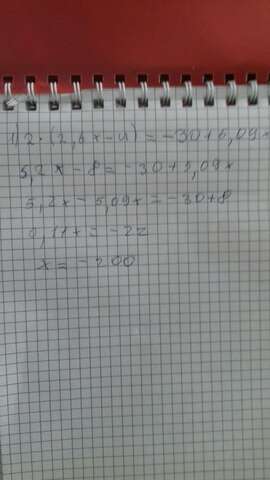 1) 2·(2,6x-4)=-30+5,09x
5,2x-8=-30+5,09x
5,2x-5,09x=-30+8
0,11x=-22
x=-200